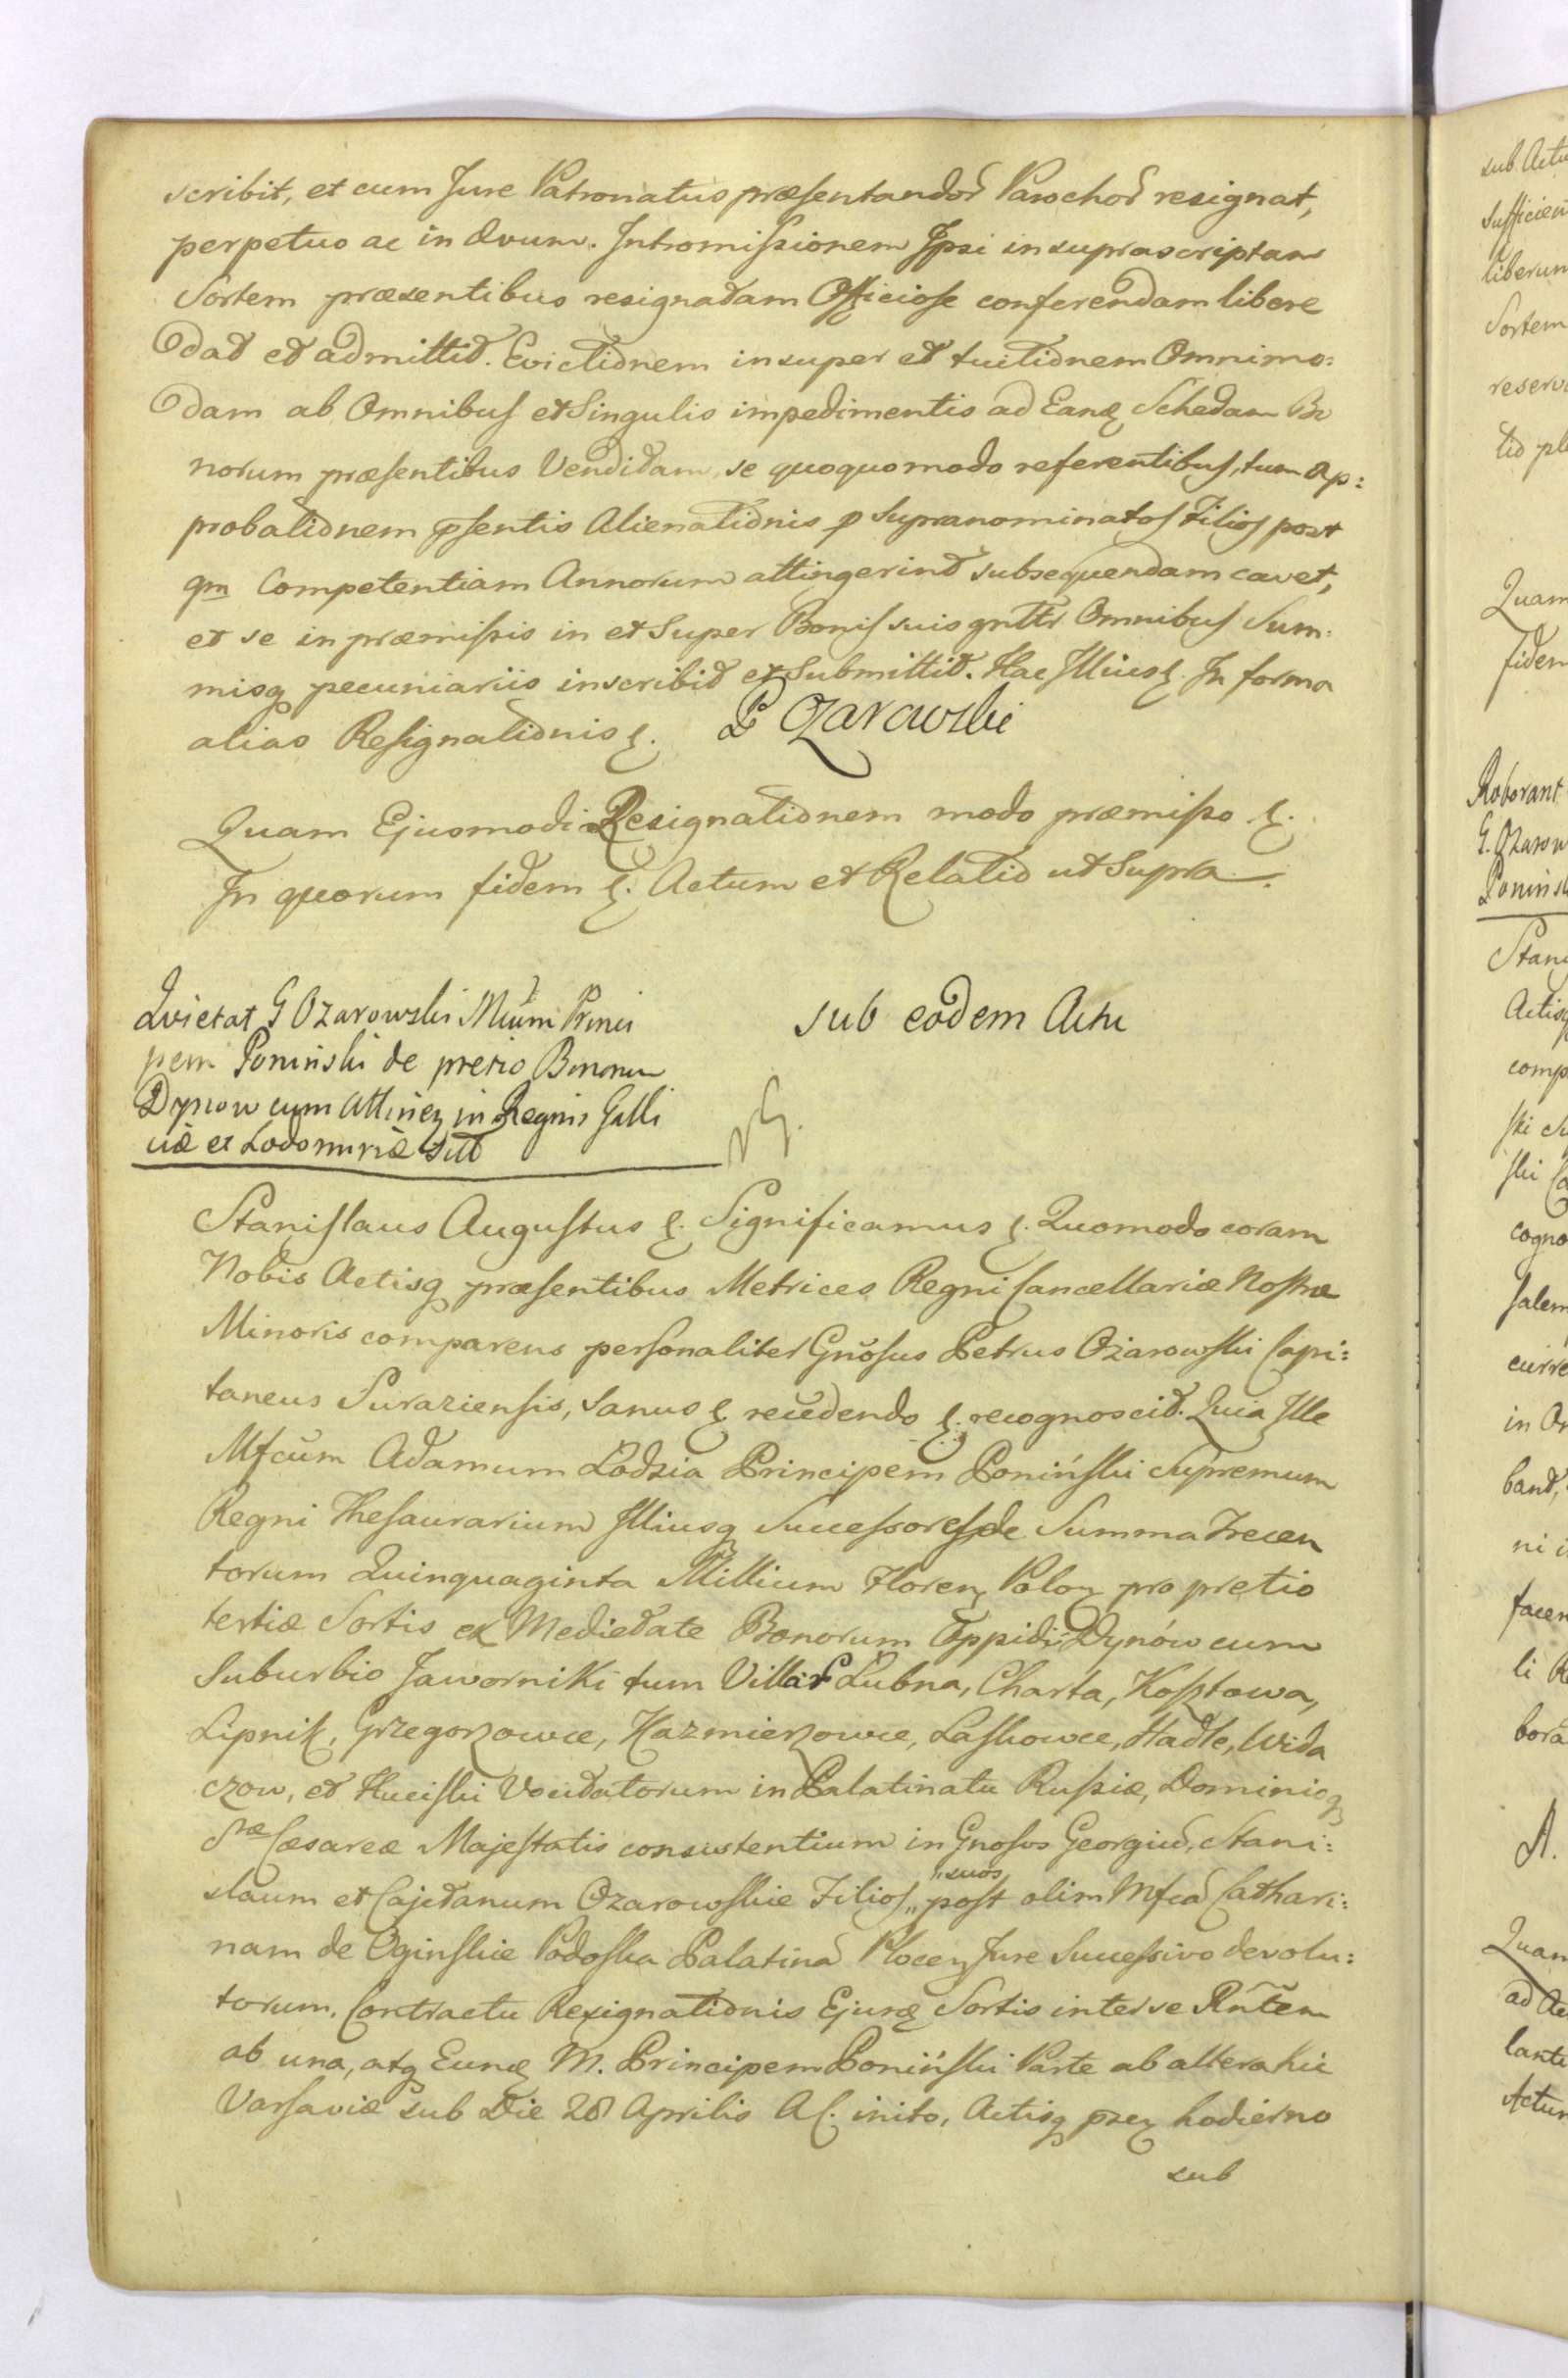 scribit, et cum Jure Patronatus præsentandor Parochor resignat,
perpetuo ac in ævum. Intromissionem Ipsi in suprascriptam
Sortem præsentibus resignatam Officiose conferendam libere
dat et admittit. Evictionem insuper et tuitionem Omnimo:
dam ab Omnibus et Singulis impedimentis ad Eanq Schedam Bo
norum præsentibus Venditam se quoquomodo referentibus, tum Ap:
probationem psentis Alienationis p Supranominatos Filios post
qm Competentiam Annorum attingerint subsequendam cavet,
et se in præmissis in et Super Bonis suis gnttr Omnibus Sum:
misq pecuniariis inscribit et Submittit. Hac Illius &. In forma
alias Resignationis &. P Ozarowski
Quam Ejusmodi Resignationem modo præmisso &.
In quorum fidem &. Actum et Relatio ut Supra.
Quietat G Ozarowski Mcum Princi
pem Poniński de pretio Bonorum
Dynow cum Attinen in Regnis Galli
ciæ et Lodomeriæ sit
sub eodem Actu
Stanislaus Augustus &. Significamus &. Quomodo coram
Nobis Actisq præsentibus Metrices Regni Cancellariæ Nostræ
Minoris comparens personaliter Gnosus Petrus Ożarowski Capi:
taneus Suraziensis, sanus &. recedendo &. recognoscit. Quia Ille
Mfcum Adamum Lodzia Principem Poniński Supremum
Regni Thesaurarium Illiusq Successores de Summa Trecen
torum Quinquaginta Millium Floren Polon pro pretio
tertiæ Sortis ex Medietate Bonorum Oppidi Dynów cum
Suburbio Jaworniki tum Villar Łubna, Charta, Kosztowa,
Lipnik, Grzegorzowce, Kazmierzowce, Laskowce, Hadle, Wida
czow, et Huciski Vocitatorum in Palatinatu Russiæ, Dominioq
Sræ Cæsareæ Majestatis consistentium in Gnosos Georgiu, Stani:
slaum et Cajetanum Ozarowskie Filios „ suos „ post olim Mfca Cathari:
nam de Oginskie Podoska Palatina Plocen Jure Successivo devolu:
torum, Contractu Resignationis Ejusq Sortis inter se Rntem
ab una, atq Eunq M. Principem Poniński Parte ab altera hic
Varsaviæ sub Die 28 Aprilis A C. inito, Actisq psen hodierno
sub